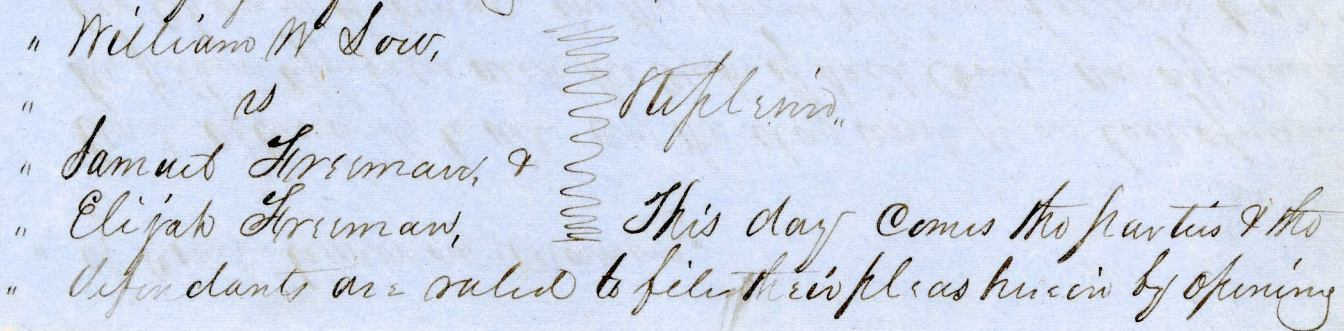 " William W Low,
" vs
Replevin,,
" Samuel Freeman, &
" Elijah Freeman,
This day Comes the parties & the
" defendants are ruled to file their pleas herein by opening